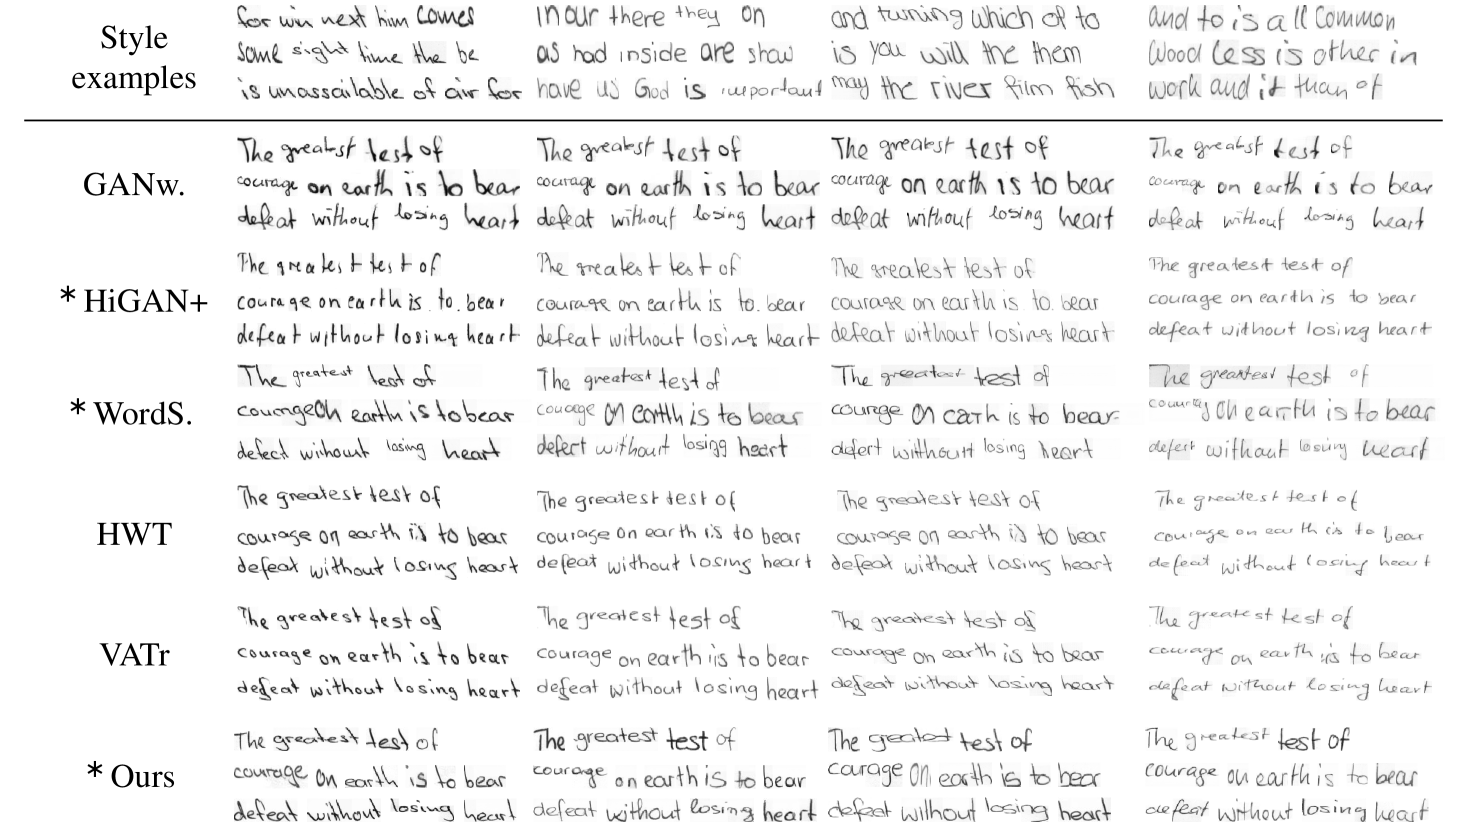 Style examples
for win next him comes
some sight time the be
is unassailable of air for
in our there they on
as had inside are show
have us God is important
and turning which of to
is you will the them
may the river film fish
and to is all Common
Wood Less is other in
work and it than of
GANw.
The greatest test of
courage on earth is to bear
defeat without losing heart
The greatest test of
courage on earth is to bear
defeat without losing heart
The greatest test of
courage on earth is to bear
defeat without losing heart
The greatest test of
courage on earth is to bear
defeat without losing heart
* HiGAN+
The greatest test of
courage on earth is to. bear
defeat without losing heart
The greatest test of
courage on earth is to. bear
defeat without losing heart
The greatest test of
courage on earth is to. bear
defeat without losing heart
The greatest test of
courage on earth is to bear
defeat without losing heart
* WordS.
The greatest test of
earth is to bear
losing heart
The greatest test of
on is to bear
defert without heart
The test of
courge on is to bear
defert losing heart
The test of
on earth is to bear
defert without losing heart
HWT
The greatest test of
courage on earth is to bear
defeat without losing heart
The greatest test of
courage on earth is to bear
defeat without losing heart
The greatest test of
courage on earth is to bear
defeat without losing heart
The greatest test of
courage on earth is to bear
defeat without losing heart
VATr
The greatest test of
courage on earth is to bear
defeat without losing heart
The greatest test of
courage on earth is to bear
defeat without losing heart
The greatest test of
courage on earth is to bear
defeat without losing heart
The greatest test of
courage on earth is to bear
defeat without losing heart
* Ours
The greatest test of
courage on earth is to bear
defeat without losing heart
The greatest test of
courage on earth is to bear
defeat without losing heart
The test of
courage on earth is to bear
defeat without losing heart
The greatest test of
courage on earth is to bear
defeat without losing heart